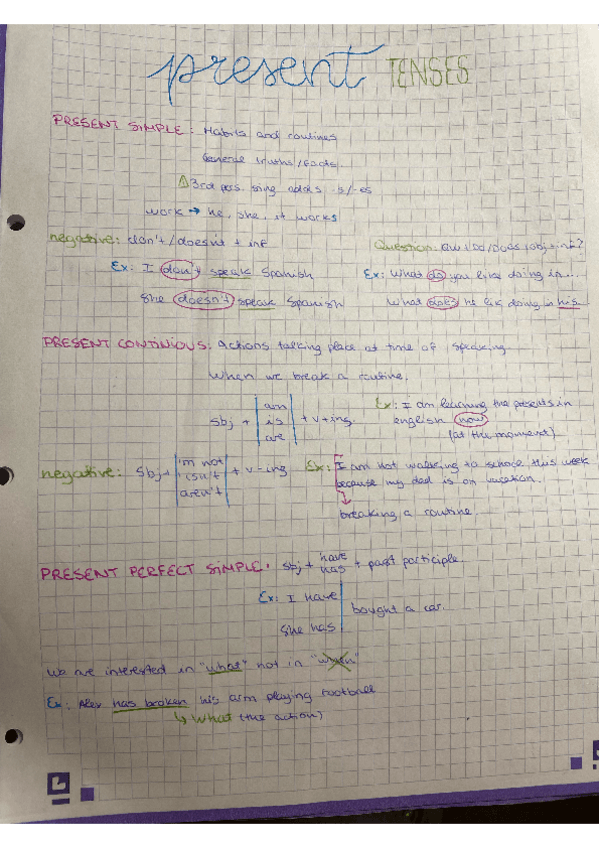 present TENSES
PRESENT SIMPLE: Habits and routines
General truths/facts
⚠3rd pers. sing adds -s/-es
work → he, she, it works
negative: don't/doesn't + inf
Question: QW+Do/Does+obj+inf?
Ex: I don't speak Spanish
Ex: What do you like doing in...
She doesn't speak Spanish
What does he lik doing in his
PRESENT CONTINIOUS: Actions talking place at time of speaking
When we break a routine.
Sbj + am is are + v+ing
Ex: I am learning the presents in
english now
(at the moment)
negative: Sbj+ 'm not isn't aren't + v-ing
Ex: I am not walking to school this week
because my dad is on vacation.
↓
breaking a routine.
PRESENT PERFECT SIMPLE: Sbj + have has + past participle
Ex: I have
bought a car.
She has
We are interested in "what" not in "when"
Ex: Alex has broken his arm playing football
↳ What (the action)